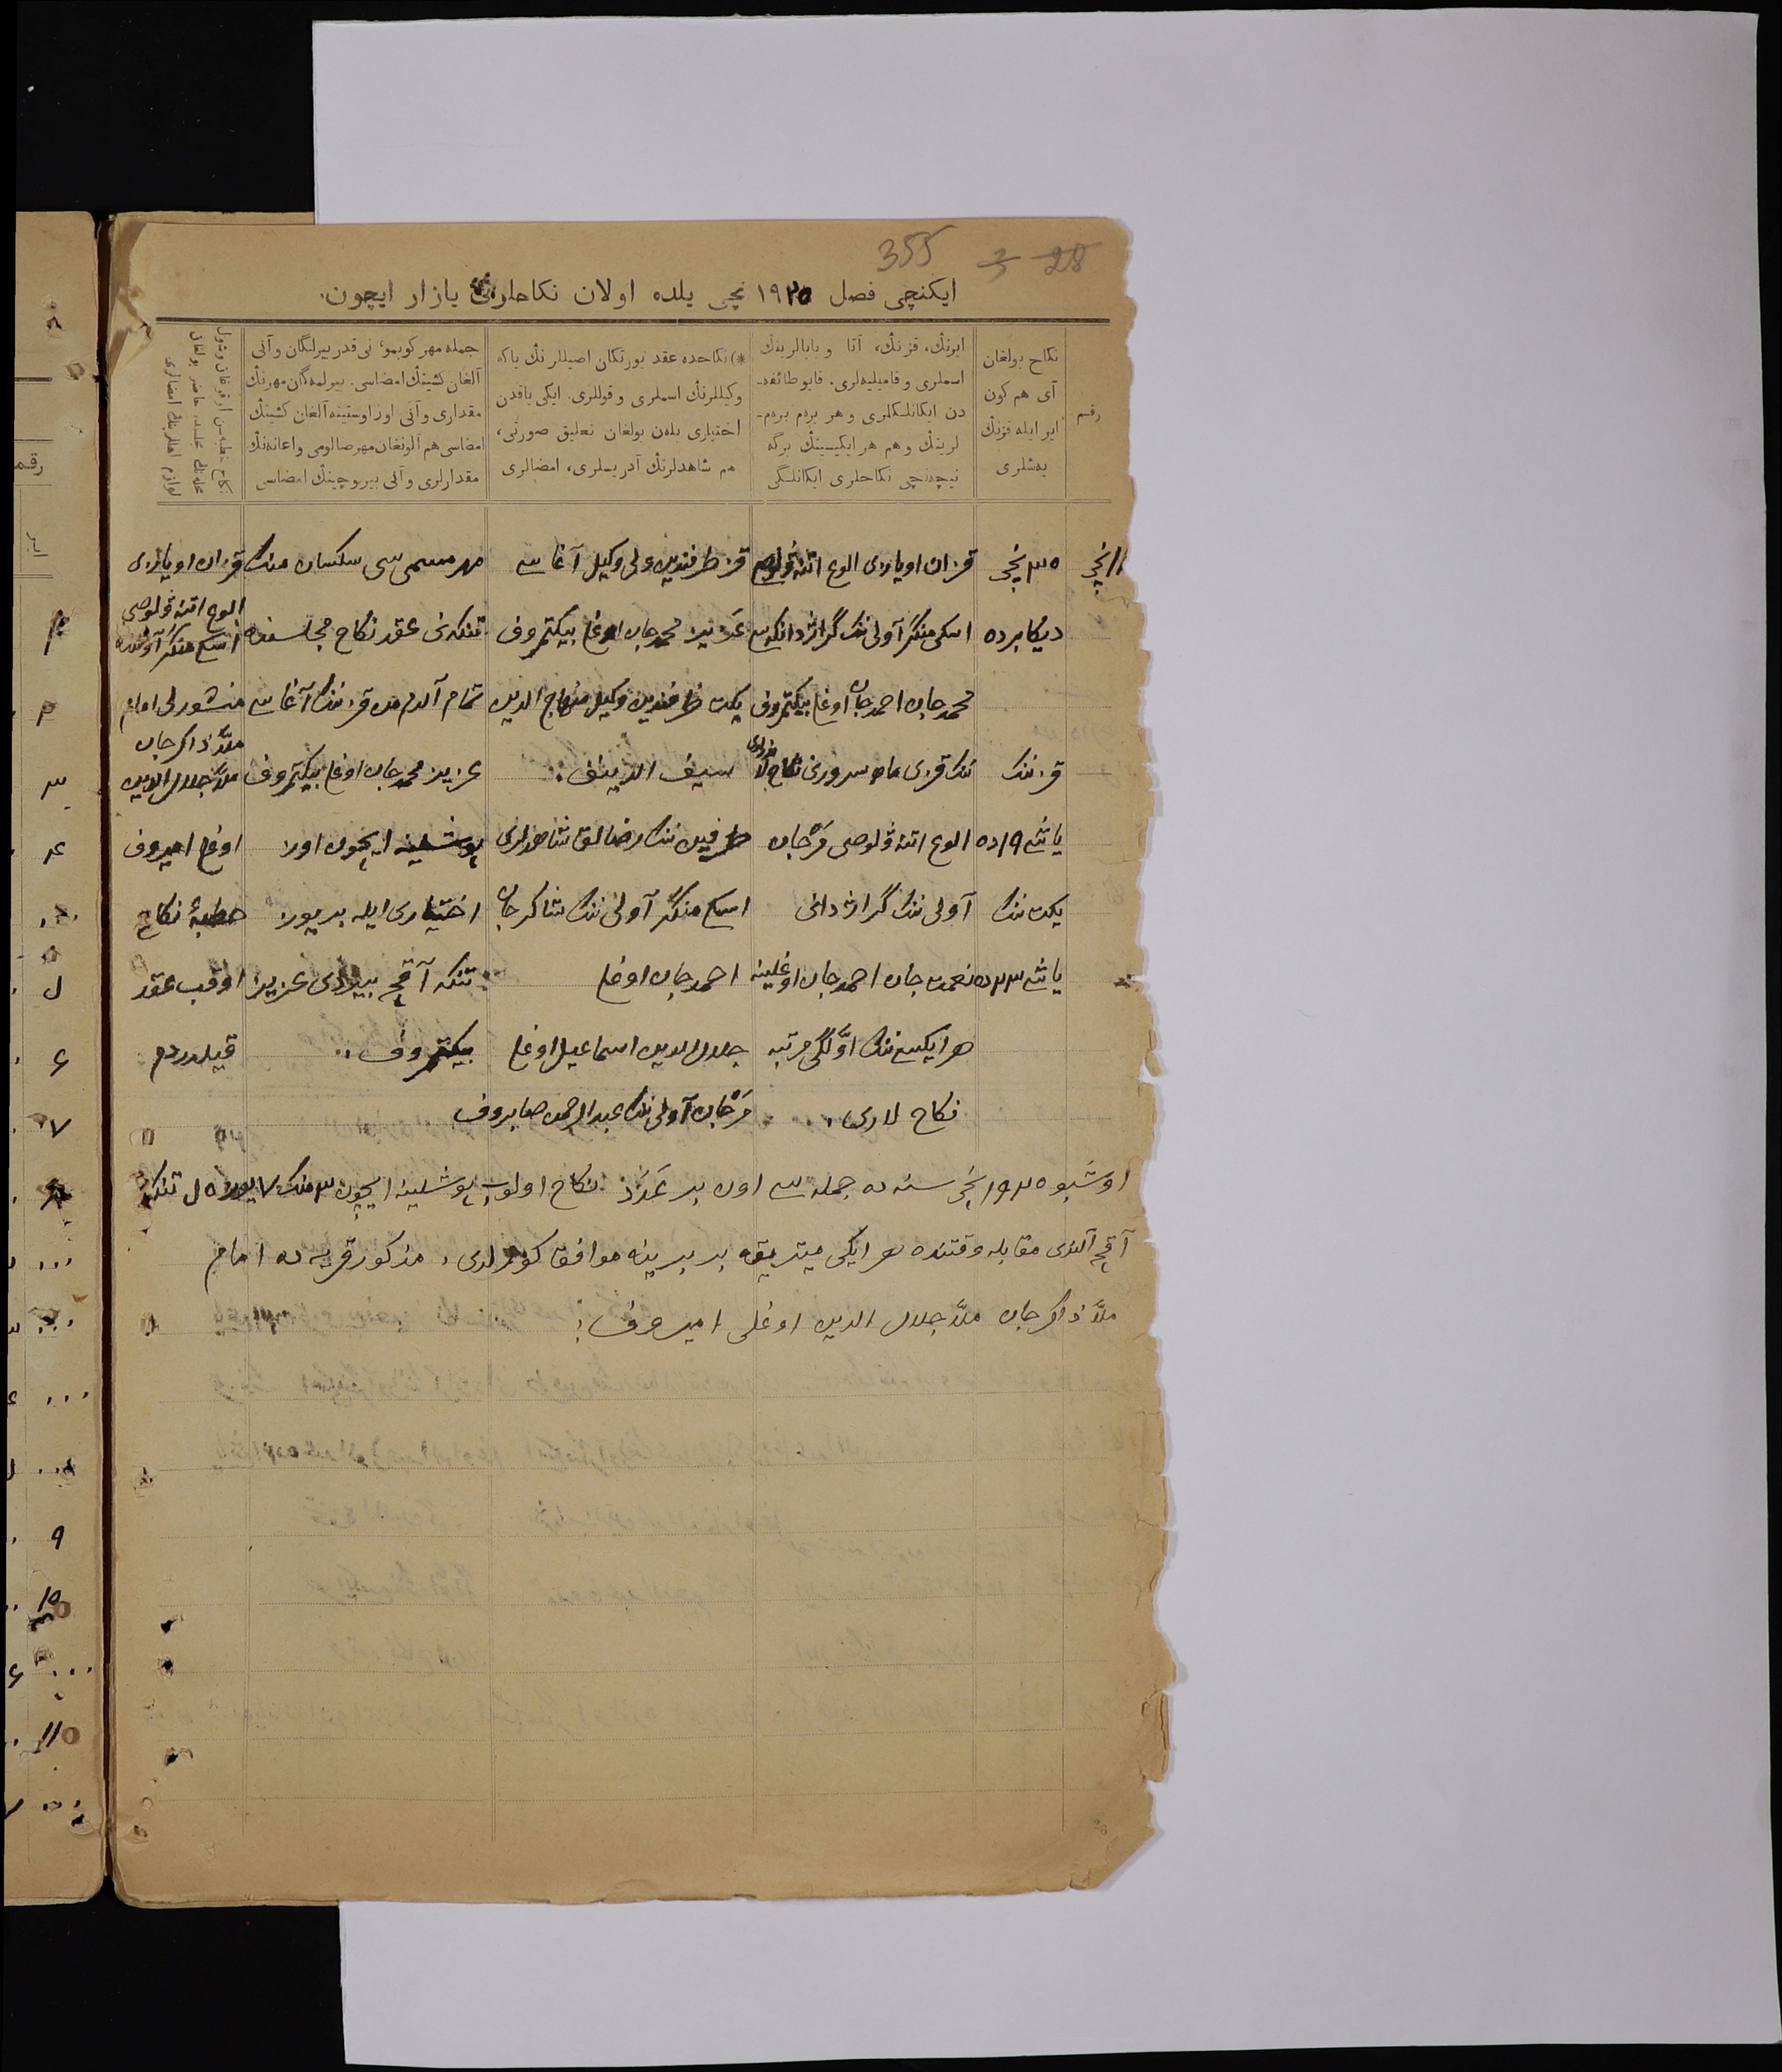 355 3 28
ایکنچی فصل ۱۹۲۰ نچی یلده اولان نکاحلرنی یازار ایچون.
رقم
نکاح بولغان
آی هم کون
ایر ایله قزنڭ
یەشلری
ایرنڭ، قزنڭ، آتا و بابالرینڭ
اسملری و فامیلیەلری. قایو طائفە-
دن ایکانلکلری و هر برم برم-
لرینڭ و هم هر ایکیسینڭ برگە
نیچەنچی نکاحلری ایکانلگی
*) نکاحدە عقد یورتکان اصیللرنڭ یاکە
وکیللرنڭ اسملری و قوللری. ایکی یاقدن
اختیاری بلەن بولغان تعلیق صورتی،
هم شاهدلرنڭ آدریسلری، امضالری
جمله مهر کوبمو، نی قدر بیرلگان و آنی
آلغان کشینڭ امضاسی. بیرلمەگان مهرنڭ
مقداری و آنی اوز اوستینە آلغان کشینڭ
امضاسی هم آلونغان مهر صالومی و اعانەنڭ
مقدارلری و آنی بیروچینڭ امضاسی
۱۱ نچی
۳۰ نچی
دیکابرده
قزننک
یاشی ۱۹ ده
یکت ننک
یاشی ۲۳ ده
قزان اویازی الوغ اتنه ولوصی
اسکی منگر آولی ننک گراژدانکەسی
محمدجان احمدجان اوغلی بیکتمروف
ننک قزی ماه سرورنی نکاحلادی
الوغ اتنه ولوصی مرجان
آولی ننک گراژدانی
نعمت جان احمدجان اوغلینه
هر ایکیسی ننک اوّلگی مرتبه
نکاح لاری.
قز طرفندین ولی وکیل آغاسی
عزیز محمدجان اوغلی بیکتمروف
یکت طرفندین وکیل منهاج الدین
سیف الدینف.
طرفین ننک رضالق شاهدلری
اسکی منگر آولی ننک شاکرجان
احمدجان اوغلی
جلال الدین اسماعیل اوغلی
مرجان آولی ننک عبدالرحمن صابروف
مهر مسمی سی سکسان منک
تنکه نی عقد نکاح مجلسنده
تمام آلدم من قزننک آغاسی
عزیز محمدجان اوغلی بیکتمروف
پوشلینه ایچون اوز
اختیاری ایله بر یوز
تنکه آقچه بیردی عزیز
بیکتمروف.
قزان اویازی
الوغ اتنه ولوصی
اسکی منگر آولنده
منشورلی امام
ملّا ذاکرجان
ملّا جلال الدین
اوغلی امیروف
خطبۀ نکاح
اوقب عقد
قیلدردم
اوشبو ۱۹۲۰ نچی سنه ده جمله سی اون بر عدد نکاح اولوب پوشلینه ایچون ۳ منک ۷ یوز ۵۰ تنکه
آقچه آلندی مقابله وقتنده هر ایکی میتریقه بر برینه موافق کورلدی. مذکور قریه ده امام
ملّا ذاکرجان ملّا جلال الدین اوغلی امیروف.